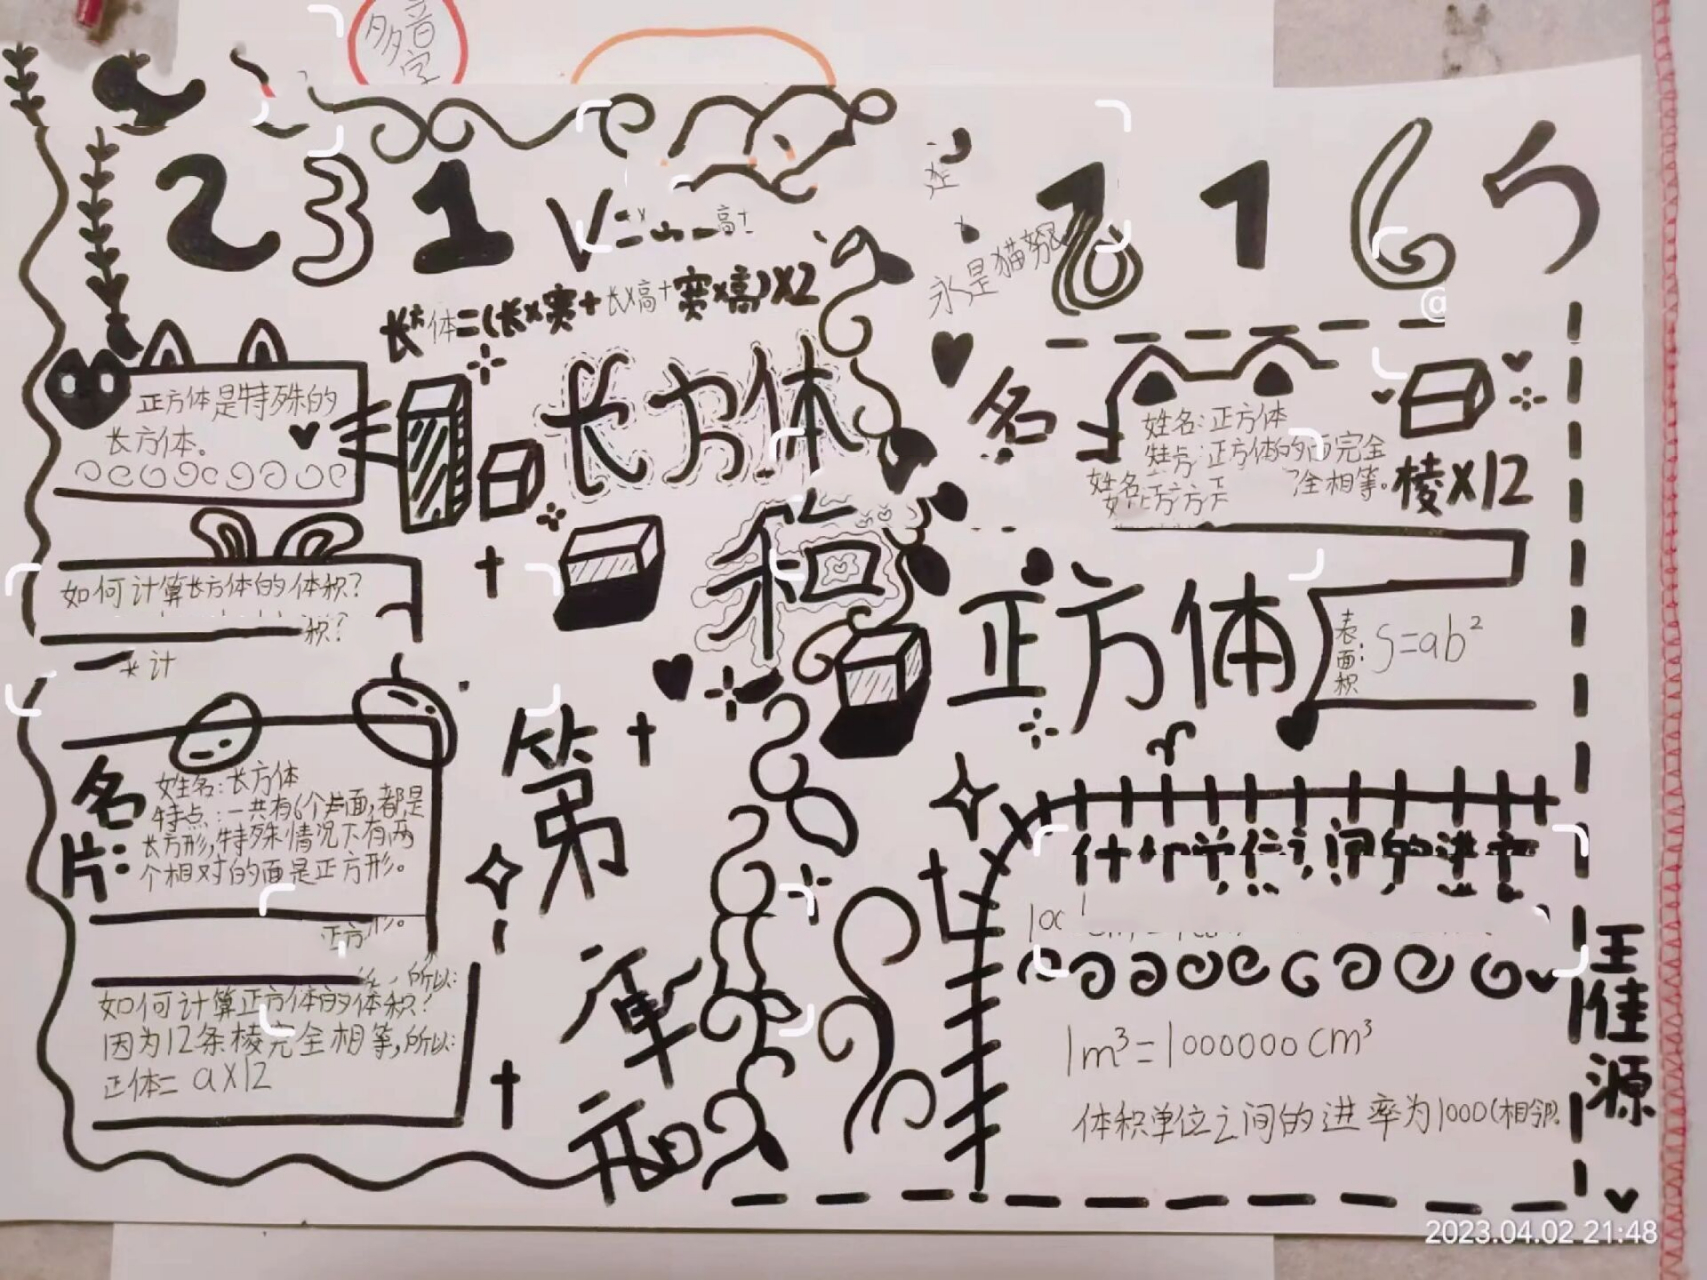 多音字
2 3 1
1 1 6
永是猫努
长方体=(长×宽+长×高+宽×高)×2
正方体是特殊的
长方体。
长方体
和
正方体
名
姓名:正方体
特点:正方体的 完全
全相等。
棱×12
如何计算长方体的体积?
积?
计
表面积: S=ab²
第
单元
名片:
姓名:长方体
特点:一共有6个 面,都是
长方形,特殊情况下有两
个相对的面是正方形。
正方形。
所以:
如何计算正方体的体积?
因为12条棱完全相等,所以:
正体= a×12
什 单位之间的进率
1m³=1000000cm³
体积单位之间的进率为1000(相邻
王佳源
2023.04.02 21:48